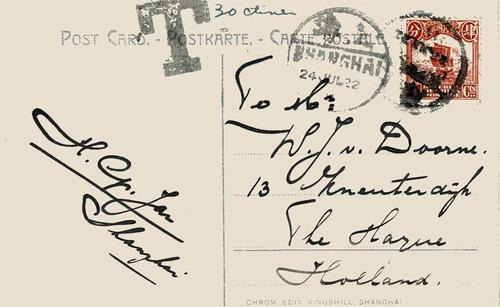 T
30 cline
POST CARD. - POSTKARTE. - CARTE POSTALE
SHANGHAI
24 JUL 22
CTS
To Mr:
W. J. v. Doorne.
13 Kneuterdijk
The Hague
Holland.
H. Cp. Jan
Shanghai
CHROM. EDIT. KINGSHILL, SHANGHAI